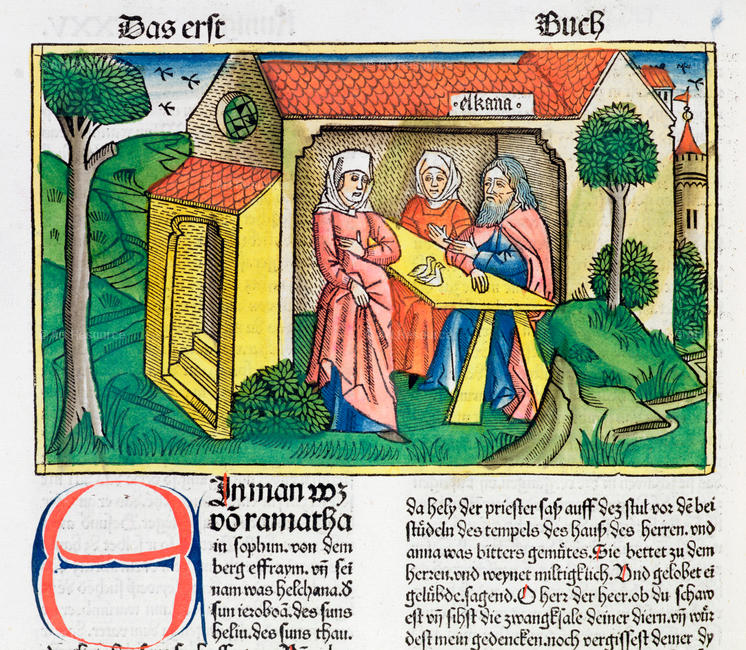 Das erst Buch
·elkana·
EJn man wz
võ ramatha
in sophim. von dem
berg effraym. vñ sei
nam was helchana. d̕
sun ieroboã. des suns
heliu. des suns thau.
da hely der priester saß auff dez stul vor dẽ bei
stüdeln des tempels des hauß des herren. vnd
anna was bitters gemütes. Sie bettet zu dem
herren. vnd weynet miltigklich. Vnd gelobet ei
gelübde. sagend. O herr der heer. ob du schaw
est vñ sihst die zwangksale deiner diern. vñ würst
dest mein gedencken. noch vergissest deiner dy